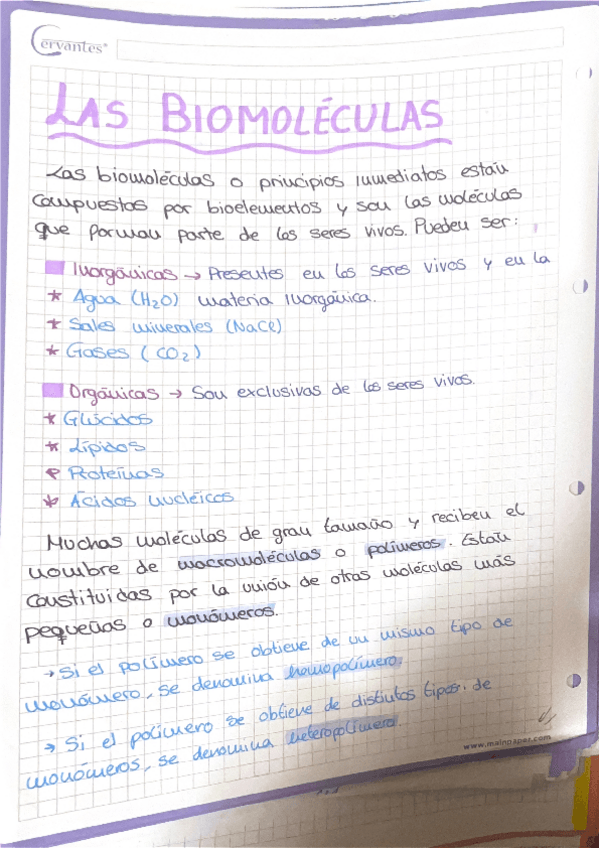 Cervantes®
LAS BIOMOLÉCULAS
Las biomoléculas o principios inmediatos están
compuestos por bioelementos y son las moléculas
que forman parte de los seres vivos. Pueden ser:
Inorgánicas → Presentes en los seres vivos y en la
* Agua (H₂O) materia inorgánica.
* Sales minerales (NaCl)
* Gases (CO₂)
Orgánicas → Son exclusivas de los seres vivos.
* Glúcidos
* Lípidos
* Proteínas
* Ácidos nucléicos
Muchas moléculas de gran tamaño y reciben el
nombre de macromoléculas o polímeros. Están
constituidas por la unión de otras moléculas más
pequeñas o monómeros.
→ Si el polímero se obtiene de un mismo tipo de
monómero, se denomina homopolímero.
→ Si el polímero se obtiene de distintos tipos de
monómeros, se denomina heteropolímero.
www.mainpaper.com